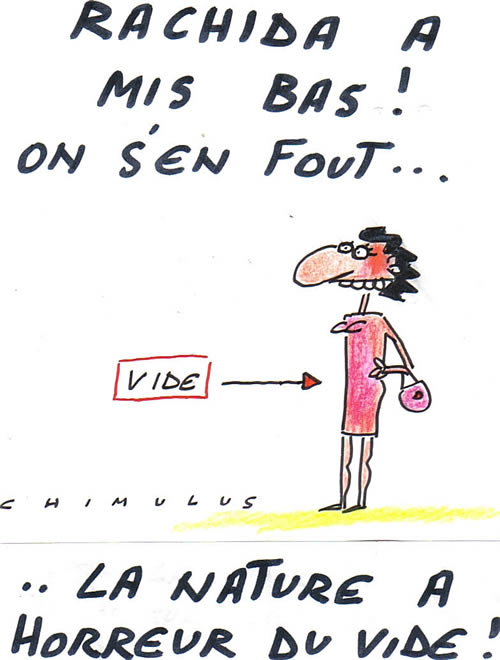 RACHIDA A
MIS BAS !
ON S'EN FOUT...
VIDE
CHIMULUS
.. LA NATURE A
HORREUR DU VIDE !